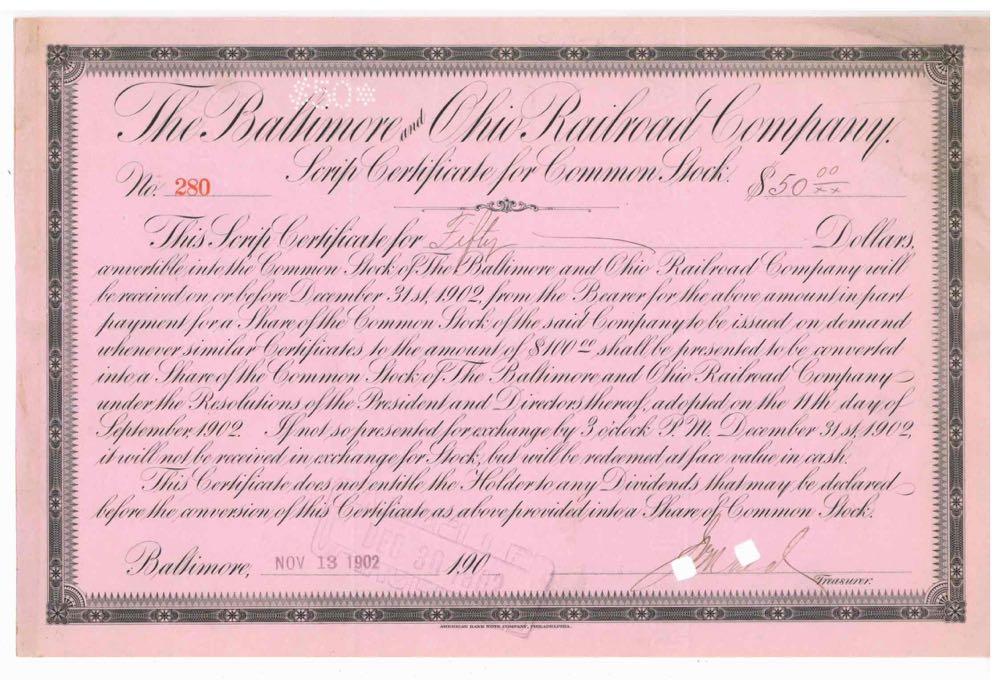 $50*
The Baltimore and Ohio Railroad Company.
Scrip Certificate for Common Stock.
No. 280
$50 00/xx
This Scrip Certificate for Fifty Dollars,
convertible into the Common Stock of The Baltimore and Ohio Railroad Company will
be received on or before December 31st, 1902, from the Bearer for the above amount in part
payment for a Share of the Common Stock of the said Company to be issued on demand
whenever similar Certificates to the amount of $100 00 shall be presented to be converted
into a Share of the Common Stock of The Baltimore and Ohio Railroad Company
under the Resolutions of the President and Directors thereof, adopted on the 11th day of
September, 1902. If not so presented for exchange by 3 o'clock P.M. December 31st, 1902,
it will not be received in exchange for Stock, but will be redeemed at face value in cash.
This Certificate does not entitle the Holder to any Dividends that may be declared
before the conversion of this Certificate as above provided into a Share of Common Stock.
DEC 30
Baltimore, NOV 13 1902 190
Treasurer.
AMERICAN BANK NOTE COMPANY, PHILADELPHIA.